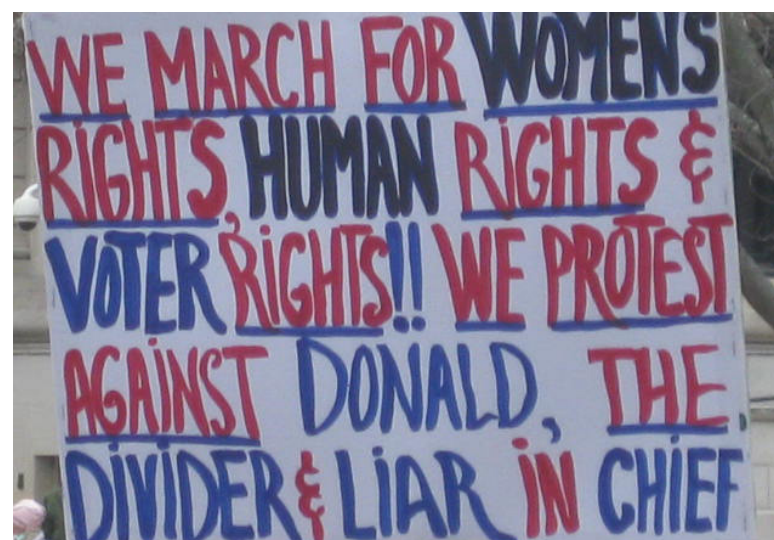 WE MARCH FOR WOMENS
RIGHTS, HUMAN RIGHTS &
VOTER RIGHTS!! WE PROTEST
AGAINST DONALD, THE
DIVIDER & LIAR IN CHIEF